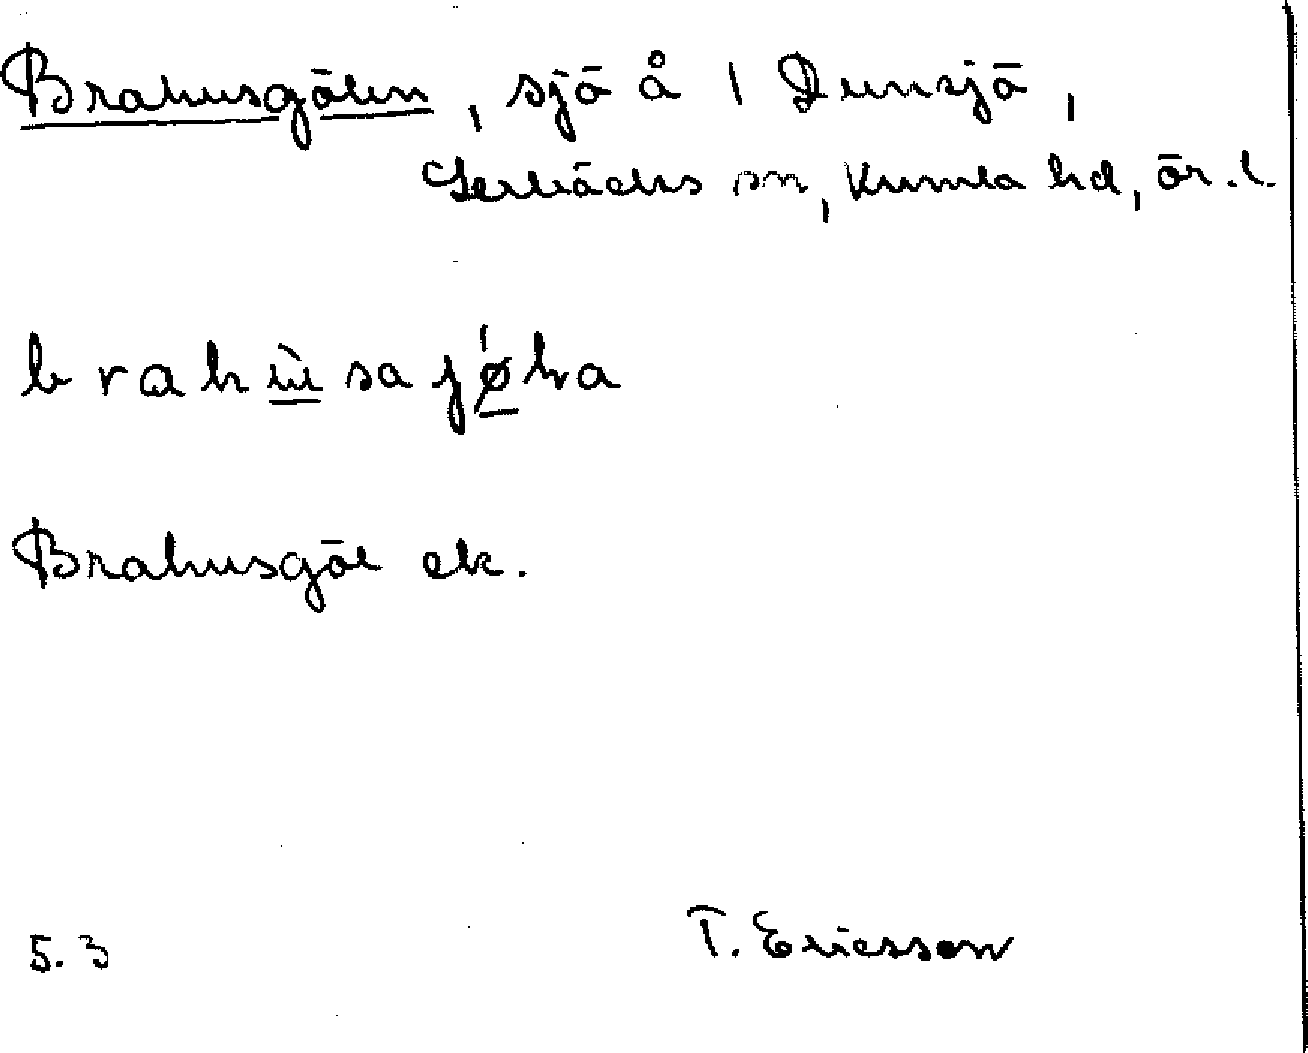 Brahusgölen, sjö å 1 Dunsjö,
Lerbäcks sn, Kumla hd, ör.l.
Brahusgöl ek.
5.3
T. Ericsson